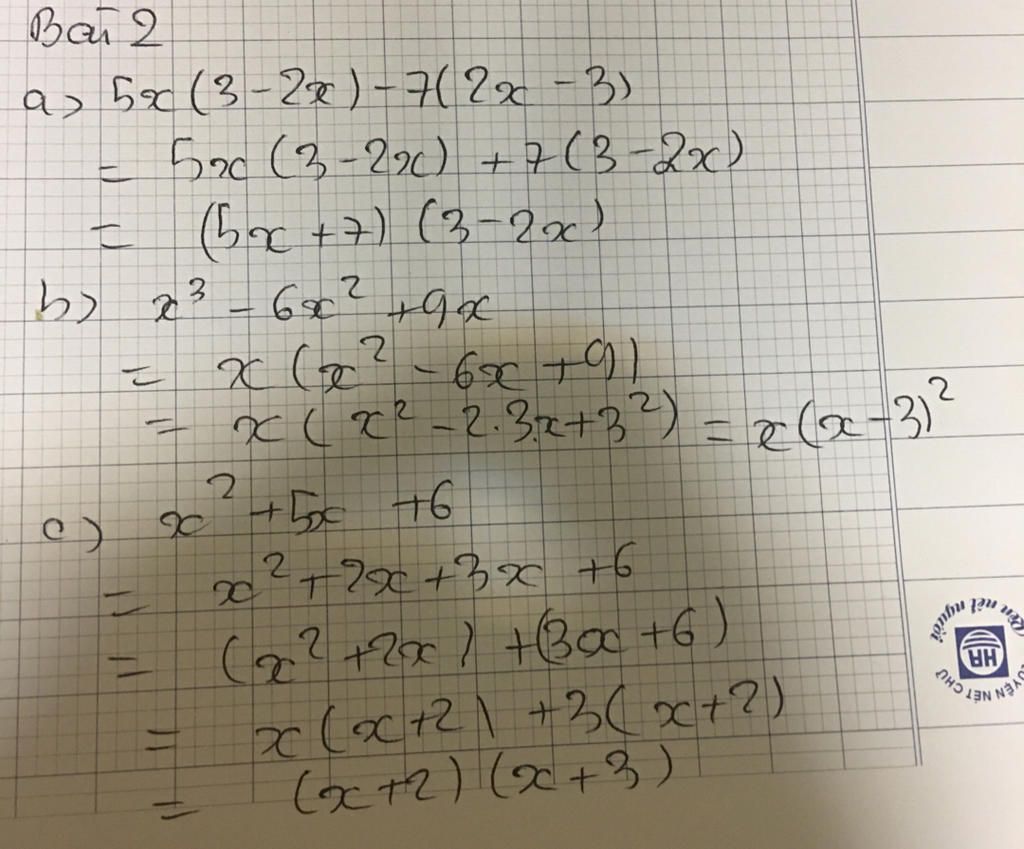 Bài 2
a) 5x(3 - 2x) - 7(2x - 3)
= 5x(3 - 2x) + 7(3 - 2x)
= (5x + 7)(3 - 2x)
b) x³ - 6x² + 9x
= x(x² - 6x + 9)
= x(x² - 2.3.x + 3²) = x(x - 3)²
c) x² + 5x + 6
= x² + 2x + 3x + 6
= (x² + 2x) + (3x + 6)
= x(x + 2) + 3(x + 2)
= (x + 2)(x + 3)
Rèn nết người
HA
LUYỆN NÉT CHỮ